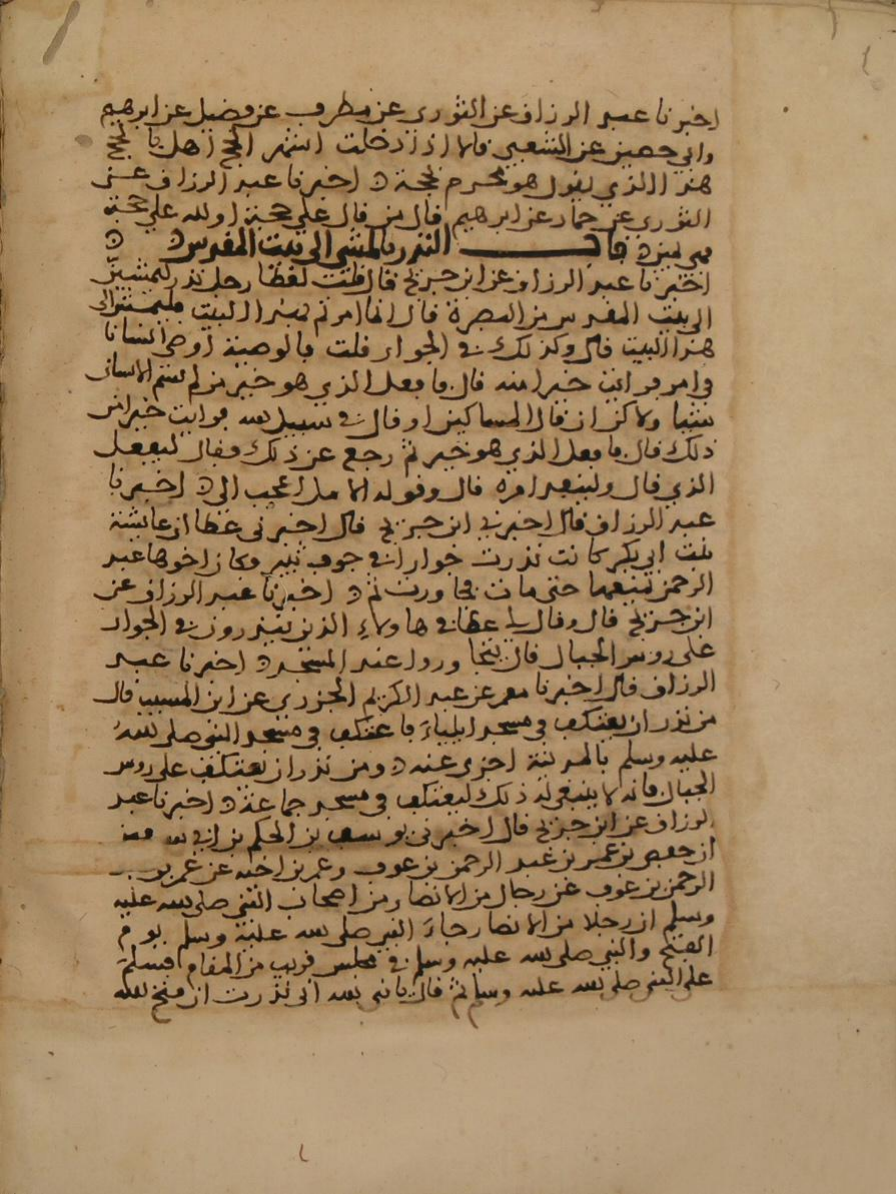 اخبرنا عبد الرزاق عن الثوري عن مطرف عن فضيل عن ابرهيم
وابي حصين عن الشعبي قالا اذا دخلت اشهر الحج اهل بالحج
هذا الذي يقول هو محرم بحجة ه اخبرنا عبد الرزاق عن
الثوري عن حماد عن ابرهيم قال من قال علي حجة او لله علي حجة
فهي يمين ه باب النذر بالمشي الى بيت المقدس ه ه
اخبرنا عبد الرزاق عن ابن جريج قال قلت لعطا رجل نذر ليمشين
الى بيت المقدس من البصرة قال انما امرتم بهذا البيت فليمش الى
هذا البيت قال وكذلك في الجوار قلت فالوصية اوصى انسانا
في امر فرايت خيرا منه قال فافعل الذي هو خير ما لم يسم لانسان
شيا ولاكن ان قال للمساكين او قال في سبيل الله فرايت خيرا من
ذلك قال فافعل الذي هو خير ثم رجع عن ذلك فقال ليفعل
الذي قال ولينفذ امره قال وقوله الاول اعجب الي ه اخبرنا
عبد الرزاق قال اخبرني ابن جريج قال اخبرني عطا ان عايشة
بنت ابي بكر كانت نذرت جوارا في جوف ثبير وكان اخوها عبد
الرحمن يمنعها حتى مات فجاورت ثم ه اخبرنا عبد الرزاق عن
ابن جريج قال وقال لي عطا في هاولاء الذين ينذرون في الجوار
على روس الجبال قال يتجاورون عند المسجد ه اخبرنا عبد
الرزاق قال اخبرنا معمر عن عبد الكريم الجزري عن ابن المسيب قال
من نذر ان يعتكف في مسجد ايلياء فاعتكف في مسجد النبي صلى الله
عليه وسلم بالمدينة اجزى عنه ه ومن نذر ان يعتكف على روس
الجبال فانه لا ينبغي له ذلك ليعتكف في مسجد جماعة ه اخبرنا عبد
الرزاق عن ابن جريج قال اخبرني يوسف بن الحكم بن ابي سفين
ان حفص بن عمر بن عبد الرحمن بن عوف وعمر بن حنة عن عمر بن
الرحمن بن عوف عن رجال من الانصار من اصحاب النبي صلى الله عليه
وسلم ان رجلا من الانصار جاء النبي صلى الله عليه وسلم يوم
الفتح والنبي صلى الله عليه وسلم في مجلس قريب من المقام فسلم
على النبي صلى الله عليه وسلم ثم قال يا نبي الله اني نذرت ان فتح الله